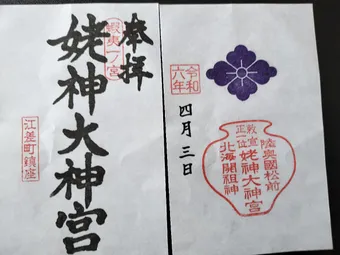 奉拝
蝦夷一ノ宮
姥神大神宮
江差町鎮座
令和
六年
四月三日
陸奥國松前
勅宣
正一位
姥神大神宮
北海開祖神